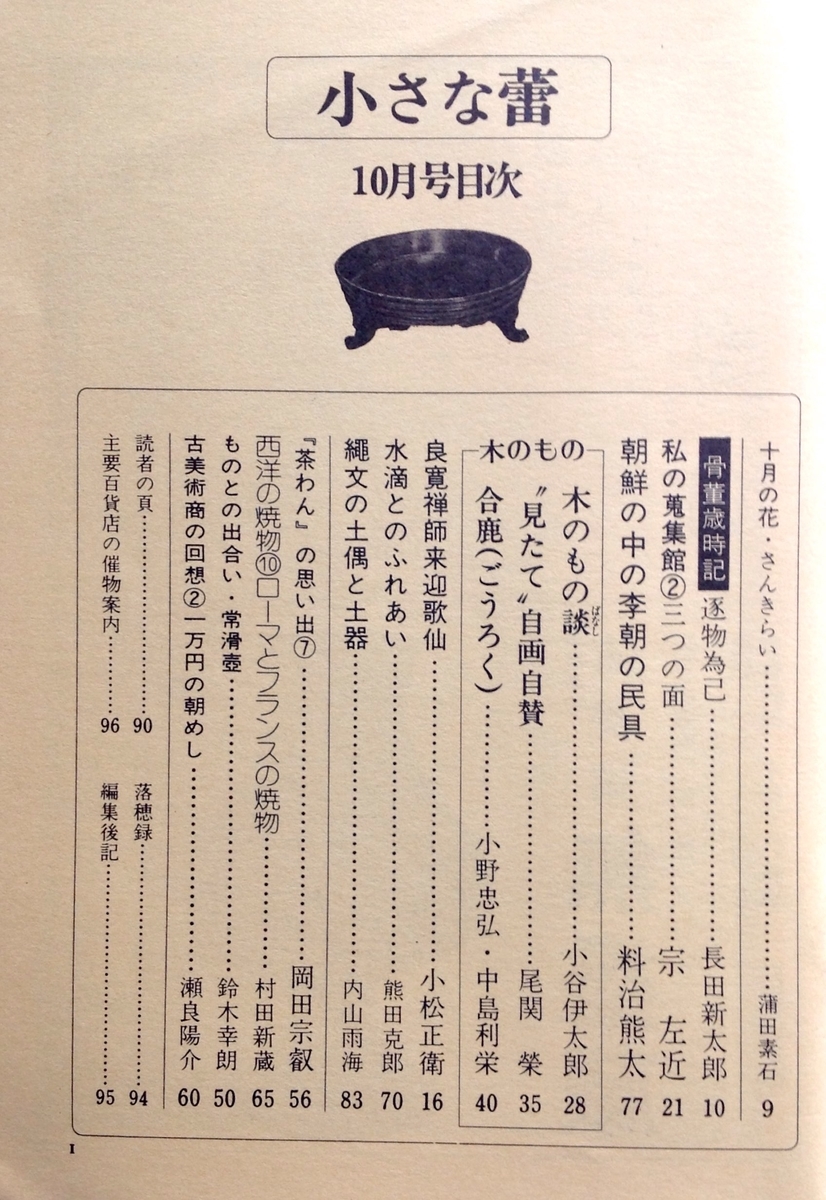 小さな蕾
10月号目次
十月の花・さんきらい……………蒲田素石 9
骨董歳時記 逐物為己……………長田新太郎 10
私の蒐集館②三つの面……………宗 左近 21
朝鮮の中の李朝の民具……………料治熊太 77
木のもの
木のもの談……………小谷伊太郎 28
ばなし
〝見たて〟自画自賛……………尾関 榮 35
合鹿(ごうろく)……………小野忠弘・中島利栄 40
良寛禅師来迎歌仙……………小松正衛 16
水滴とのふれあい……………熊田克郎 70
繩文の土偶と土器……………内山雨海 83
『茶わん』の思い出⑦……………岡田宗叡 56
西洋の焼物⑩ローマとフランスの焼物……………村田新蔵 65
ものとの出合い・常滑壺……………鈴木幸朗 50
古美術商の回想②一万円の朝めし……………瀬良陽介 60
読者の頁……………90
落穂録……………94
主要百貨店の催物案内……………96
編集後記……………95
1